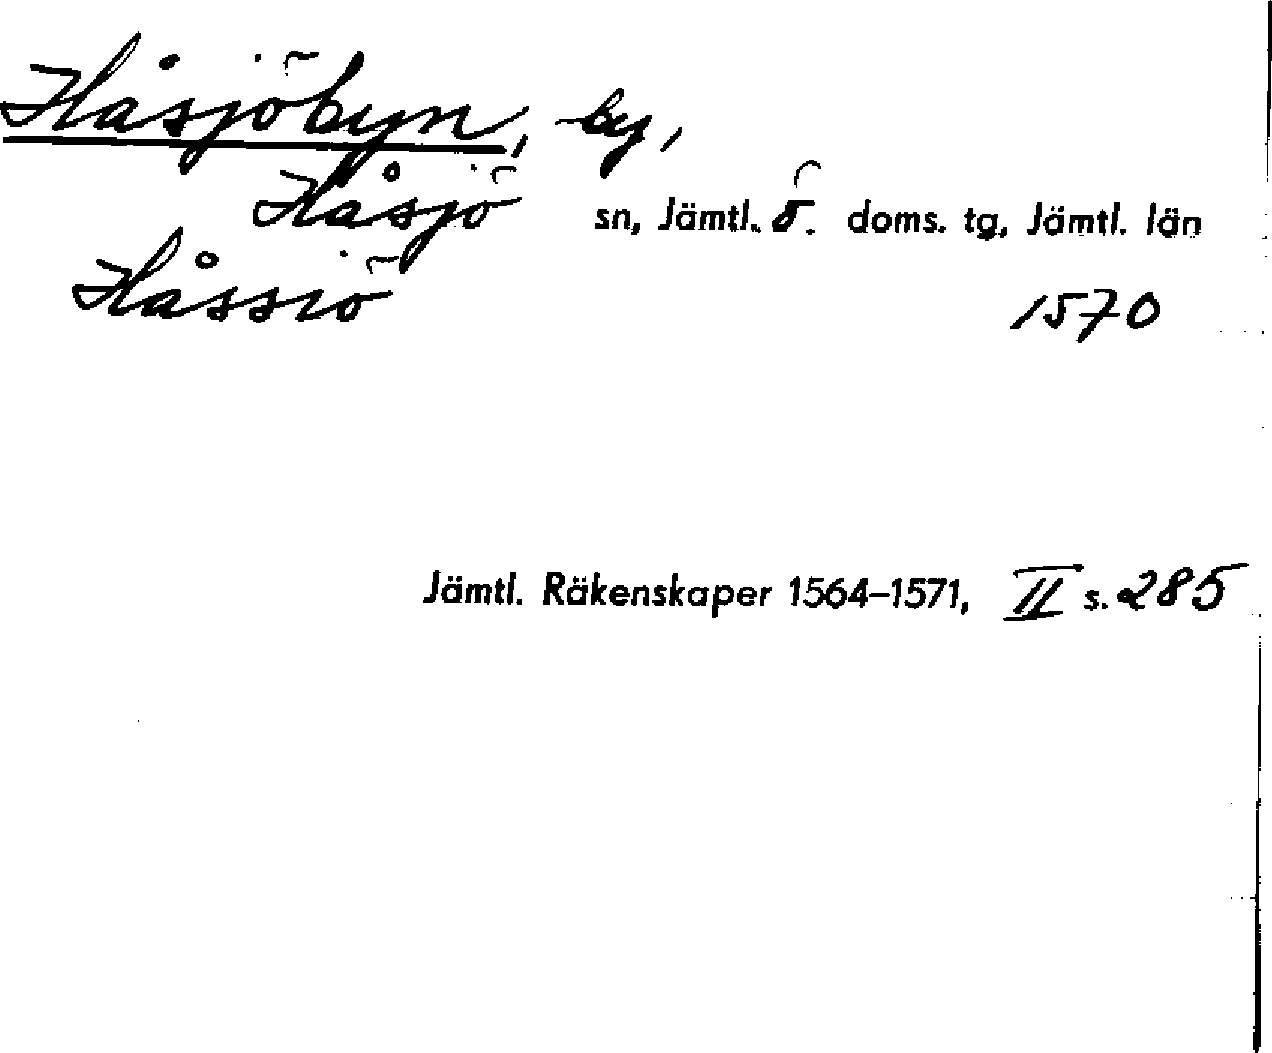 Håsjöbyn, by,
Håsjö sn, Jämtl. ö. doms. tg, Jämtl. län
Håssiö 1570
Jämtl. Räkenskaper 1564–1571, II s. 285